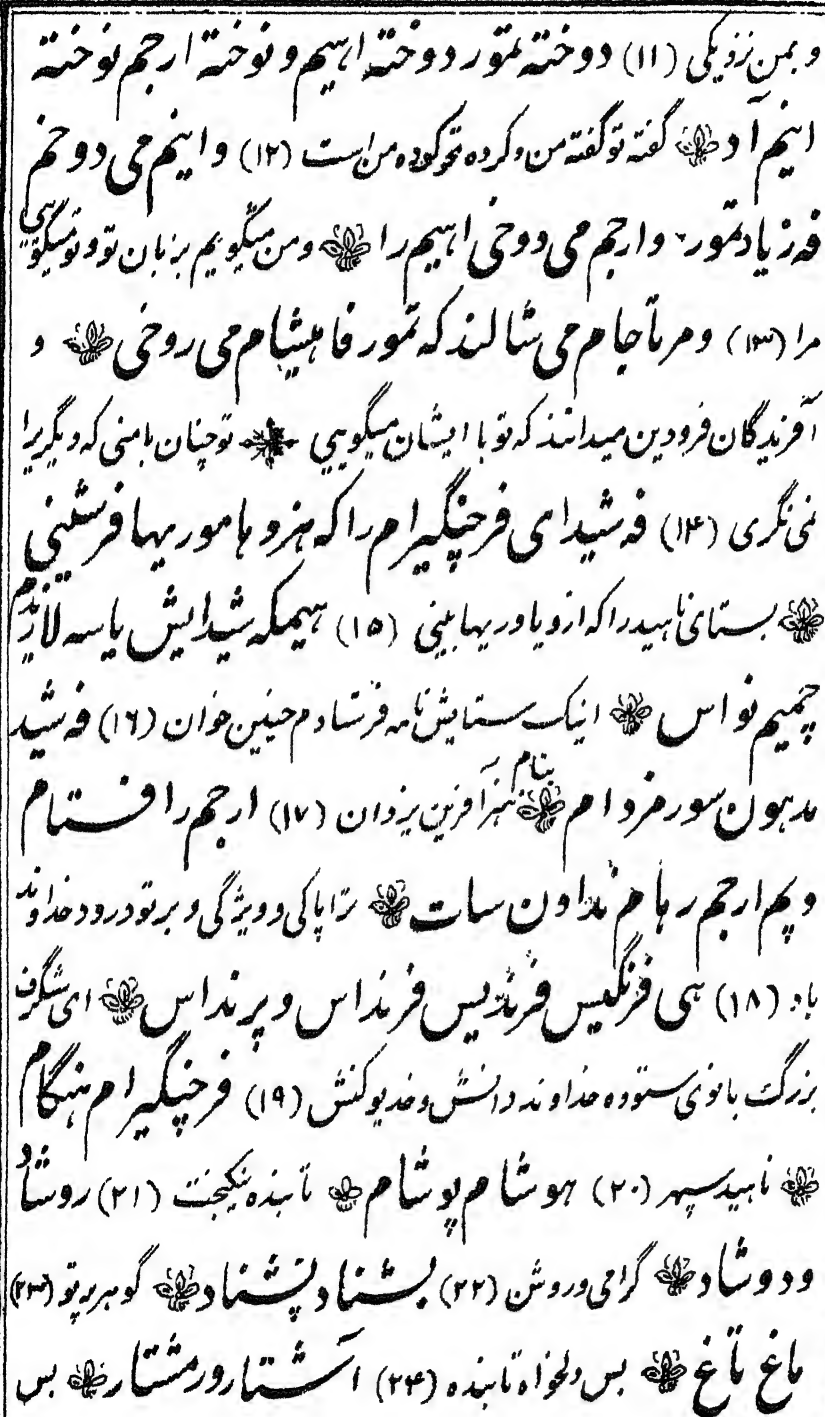 و بمن نزدیکی (۱۱) دوخته تمور دوخته اهیم و نوخته ارجم نوخته
اینم آد گفته تو گفته من و کرده تو کرده من است (۱۲) و اینم می دوخم
فه زیاد تمور وارجم می دوخی اهیم را و من میگویم بزبان تو و تو میگویی
مرا (۱۳) و مرتاجام می شالند که تمور فاهیشام می روخی و
آفریدگان فرودین میدانند که تو با ایشان میگویی تو چنان بامنی که دیگریرا
نمی نگری (۱۴) فه شیدای فرچنگیرام را که هزو هاموریها فرشنی
بستای ناهید را که ازو یاوریها بینی (۱۵) هیمکه شیدایش یاسه لازیدم
چمیم نواس اینک ستایش نامه فرستادم چنین خوان (۱۶) فه شید
مدهون سورمزدام بنام هنرآفرین یزدان (۱۷) ارجم را فستام
و پم ارجم رهام نداون سات ترا پاکی و ویژگی و بر تو درود خداوند
باد (۱۸) هی فرنگیس فرندیس فرنداس و پرنداس ای شگرف
بزرگ بانوی ستوده خداوند دانش و خدیو کنش (۱۹) فرچنگیرام هنگام
ناهید سپهر (۲۰) هوشام پوشام تابنده نیکبخت (۲۱) روشاد
و دوشاد گرامی و روشن (۲۲) بشناد پشناد گوهر پرتو (۲۳)
باغ تاغ بس دلخواه تابنده (۲۴) اشتار و رمشتار بس